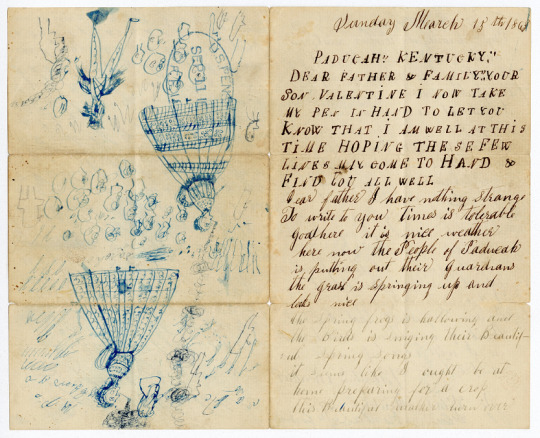 Sunday March 13th 186
PADUCAH" KENTUCKY,"
DEAR FATHER & FAMILY." YOUR
SON. VALENTINE I NOW TAKE
MY PEN IN HAND TO LET YOU
KNOW THAT I AM WELL AT THIS
TIME HOPING THESE FEW
LINES MAY COME TO HAND &
FIND YOU ALL WELL
Dear father I have nothing strange
To write to you Times is tolerable
good here it is nice weather
here now the People of Paducah
is putting out their Guardians
the grass is springing up and
looks nice
the spring frogs is hallowing and
the Birds is singing their Beautif-
ul spring song
it seems like I ought be at
home preparing for a crop
this Beautiful weather turn over